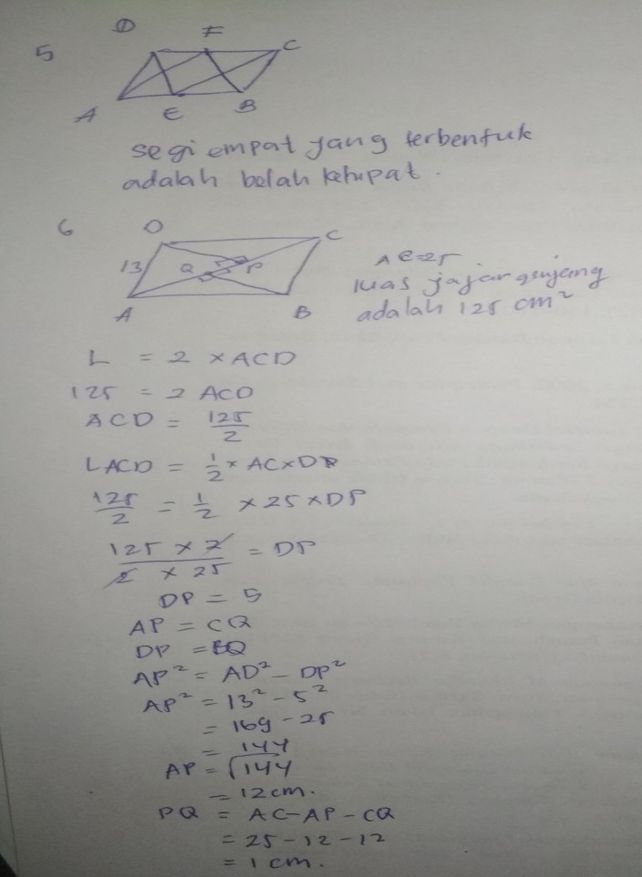 5
D F C
A E B
segi empat yang terbentuk
adalah belah ketupat.
6
D C
13 Q P
A B
AC=25
luas jajar genjang
adalah 125 cm²
L = 2 × ACD
125 = 2 ACD
ACD = 125/2
LACD = 1/2 × AC × DP
125/2 = 1/2 × 25 × DP
125 × 2 / 2 × 25 = DP
DP = 5
AP = CQ
DP = BQ
AP² = AD² - DP²
AP² = 13² - 5²
= 169 - 25
= 144
AP = √144
= 12 cm.
PQ = AC-AP-CQ
= 25-12-12
= 1 cm.